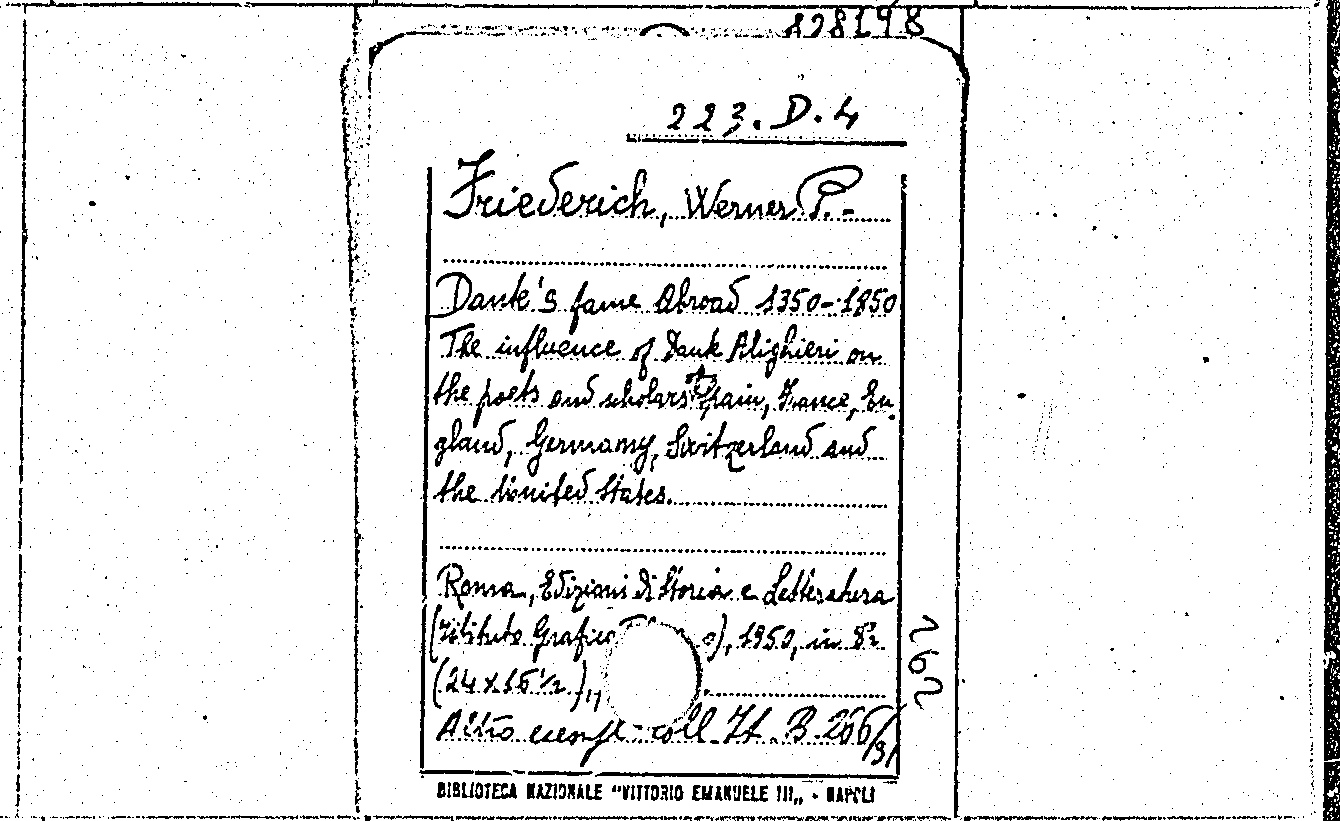 828198
223.D.4
Friederich, Werner P.-
Dante's fame Abroad 1350-1850
The influence of Dante Alighieri on
the poets and scholars of Spain, France, En-
gland, Germany, Switzerland and
the United States.
Roma, Edizioni di Storia e Letteratura
(Istituto Grafico o), 1950, in 8º
(24 x 16 ½),
Altro esempl. coll. It. B. 266/91
262
BIBLIOTECA NAZIONALE "VITTORIO EMANUELE III„ - NAPOLI